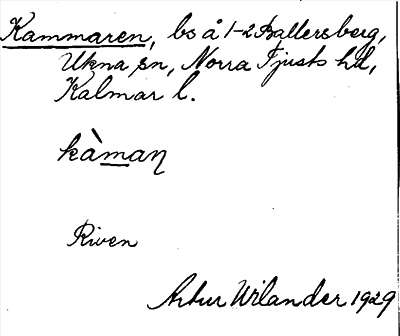 Kammaren, bs å 1-2 Ballersberg,
Ukna sn, Norra Tjusts hd,
Kalmar l.
kàmaŋ
Riven
Artur Wilander 1929